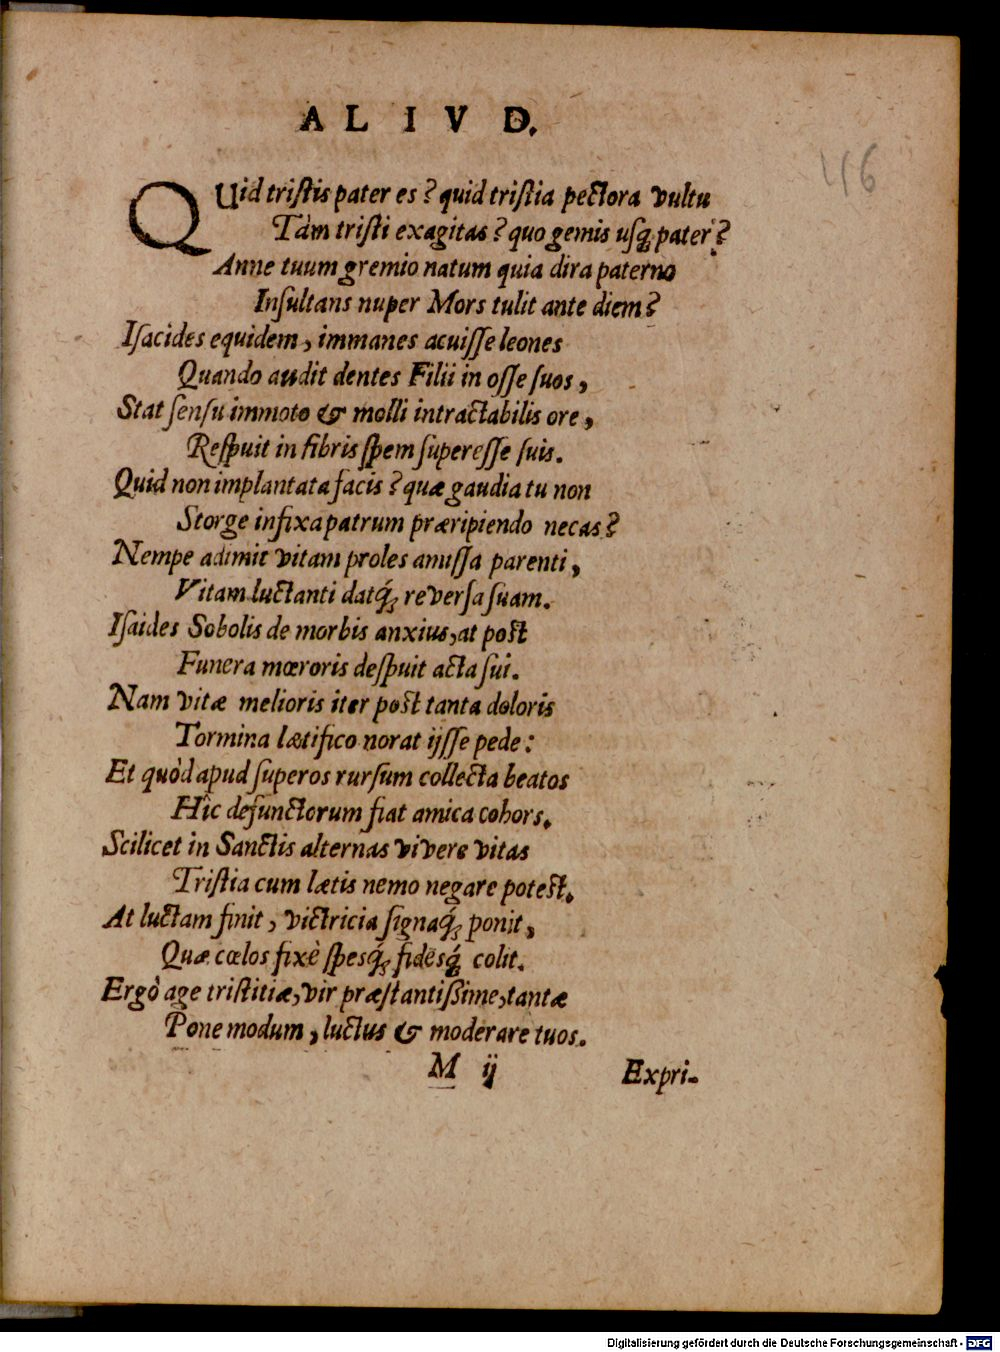 ALIVD.
46
QUid tristis pater es? quid tristia pectora vultu
Tàm tristi exagitas? quo gemis usq; pater?
Anne tuum gremio natum quia dira paterno
Insultans nuper Mors tulit ante diem?
Isacides equidem, immanes acuisse leones
Quando audit dentes Filii in osse suos,
Stat sensu immoto & molli intractabilis ore,
Respuit in fibris spem superesse suis.
Quid non implantata facis? quæ gaudia tu non
Storge infixa patrum præripiendo necas?
Nempe adimit vitam proles amissa parenti,
Vitam luctanti datq́; reversa suam.
Isaides Sobolis de morbis anxius, at post
Funera mœroris despuit acta sui.
Nam vitæ melioris iter post tanta doloris
Tormina lætifico norat ijsse pede:
Et quòd apud superos rursum collecta beatos
Hîc defunctorum fiat amica cohors.
Scilicet in Sanctis alternas vivere vitas
Tristia cum lætis nemo negare potest.
At luctam finit, victricia signaq́; ponit,
Quæ cœlos fixè spesq́; fidesq́; colit.
Ergò age tristitiæ, vir præstantissime, tantæ
Pone modum, luctus & moderare tuos.
M ij Expri-
Digitalisierung gefördert durch die Deutsche Forschungsgemeinschaft - DFG